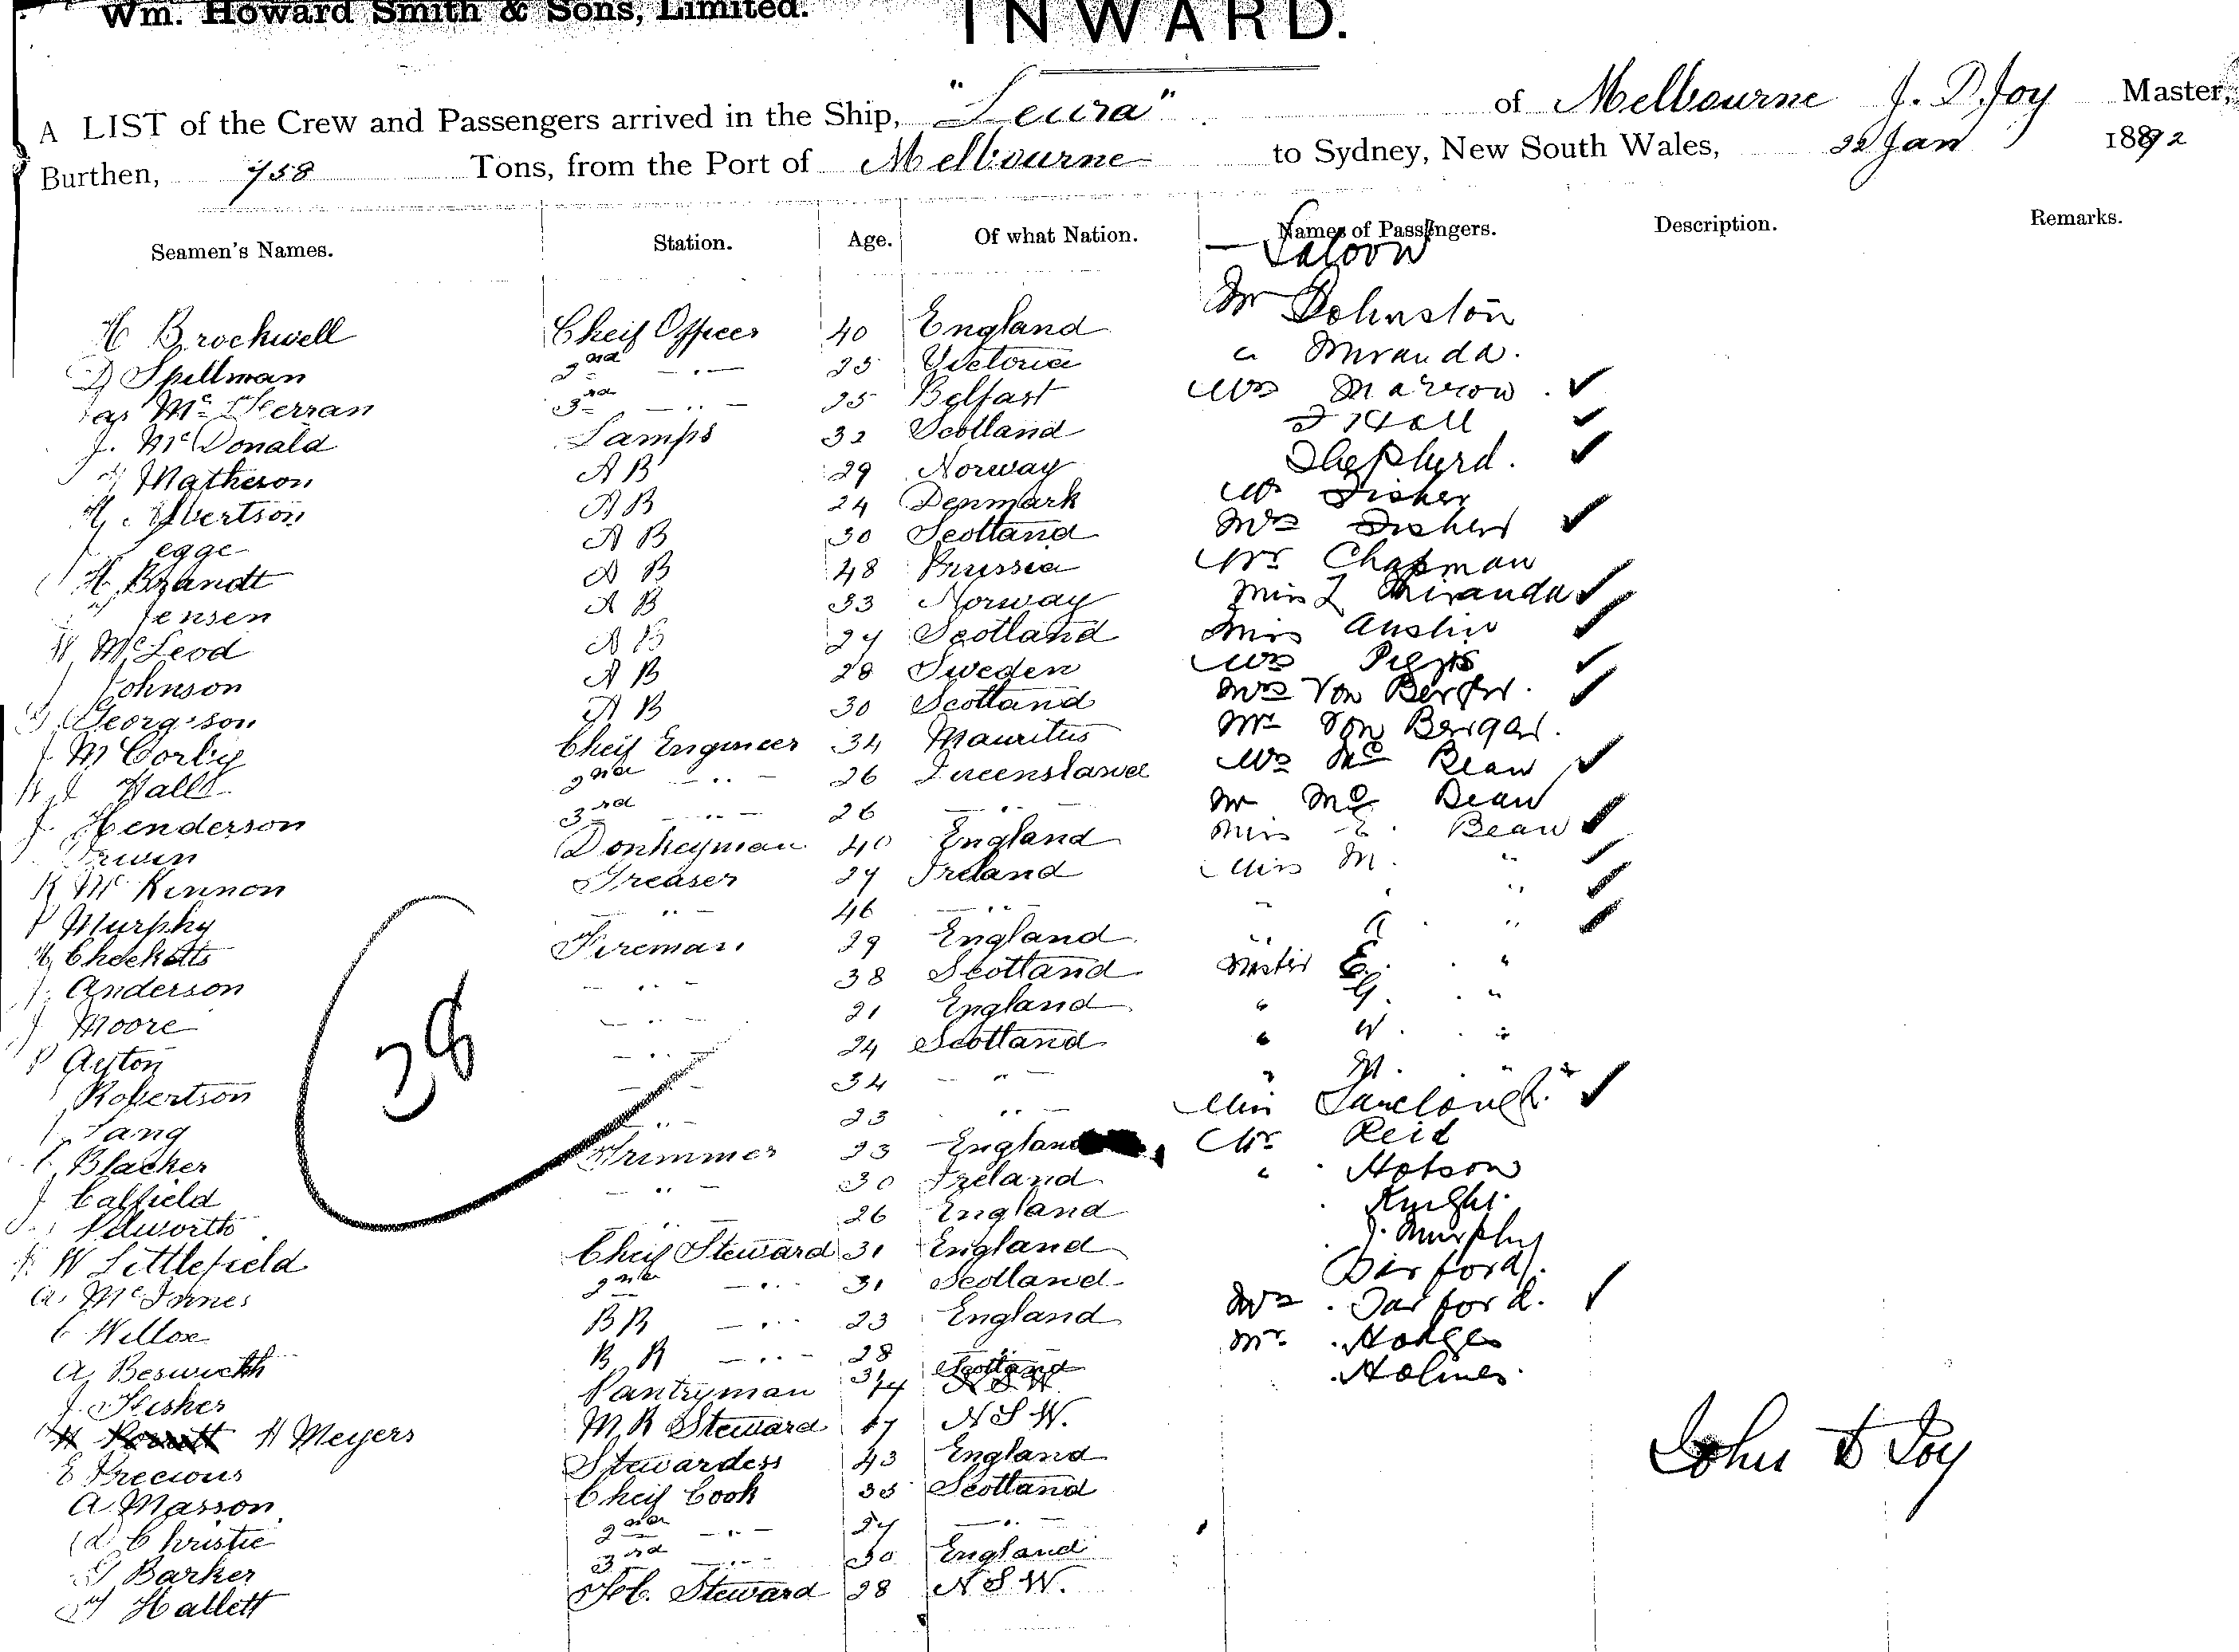 Wm. Howard Smith & Sons, Limited.
INWARD.
A LIST of the Crew and Passengers arrived in the Ship, "Leura" of Melbourne J. D. Joy Master,
Burthen, 758 Tons, from the Port of Melbourne to Sydney, New South Wales, 22 Jan 1892
Seamen's Names. Station. Age. Of what Nation. Names of Passengers. Description. Remarks.
Saloon
H Brockwell Cheif Officer 40 England Mr Johnston
D Spillman 2nd —..— 25 Victoria " Miranda.
Jas Mc 3rd —..— 25 Belfast Mrs Marrow ✓
J. McDonald Lamps 32 Scotland Hall ✓
Matheson A B 29 Norway Shepherd. ✓
Albertson A B 24 Denmark Mr Fisher
A B 30 Scotland Mrs Fisher ✓
H. Brandt A B 48 Prussia Mr Chapman
Jensen A B 33 Norway Miss L Miranda ✓
McLeod A B 24 Scotland Miss Austin ✓
J Johnson A B 28 Sweden Mrs ✓
Georgeson A B 30 Scotland Mrs Von Berger. ✓
J. M Corby Cheif Engineer 34 Mauritus Mr Von Berger.
Halls 2nd —..— 26 Queensland Mrs Mc Bean ✓
J. Henderson 3rd —..— 26 —..— Mr Mc Bean
Irwin Donkeyman 40 England Miss E. Bean ✓
McKinnon Greaser 27 Ireland Miss M. " ✓
P Murphy —..— 46 —..— " ✓
H Checketts Fireman 29 England " ✓
J. Anderson —..— 38 Scotland Master E. "
J Moore —..— 21 England " G. "
P Ayton —..— 24 Scotland " W. "
Robertson —..— 34 —..— " M. "
Lang —..— 23 —..— Miss ✓
Blacker Trimmer 23 England Mr Reid
J Calfield —..— 30 Ireland " Hobson
—..— 26 England Knight.
W Littlefield Cheif Steward 31 England J. Murphy
2nd —..— 31 Scotland
C Willox BR —..— 23 England Mrs ✓
A Beswick BR —..— 28 —..— Mr. Hodges
J. Fisher Pantryman Scotland Holmes.
H Meyers M R Steward 47 N S W.
E Precious Stewardess 43 England
A. Masson Cheif Cook 35 Scotland
Christie 2nd —..— 27 —..—
Barker 3rd —..— 30 England
Hallett F.C. Steward 28 N S W.
38
John D Joy